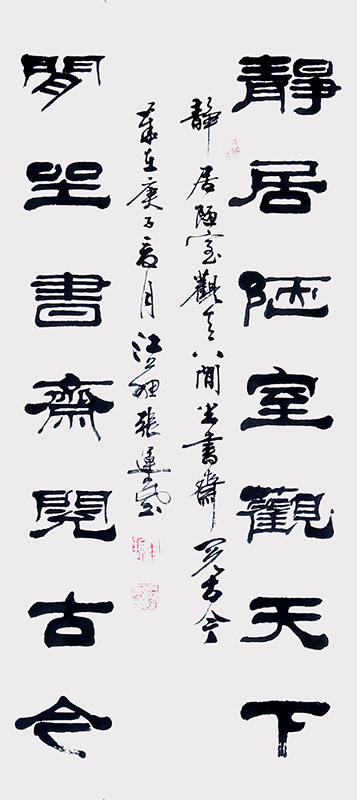 靜居陋室觀天下
靜居陋室觀天下閒坐書齋閱古今
歲在庚子月江張運
閒坐書齋閱古今